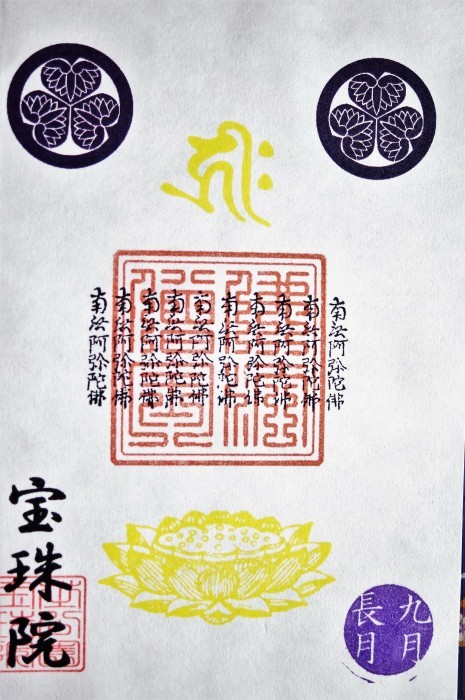 南無阿弥陀佛
南無阿弥陀佛
南無阿弥陀佛
南無阿弥陀佛
南無阿弥陀佛
南無阿弥陀佛
南無阿弥陀佛
南無阿弥陀佛
南無阿弥陀佛
南無阿弥陀佛
九月
長月
宝珠院